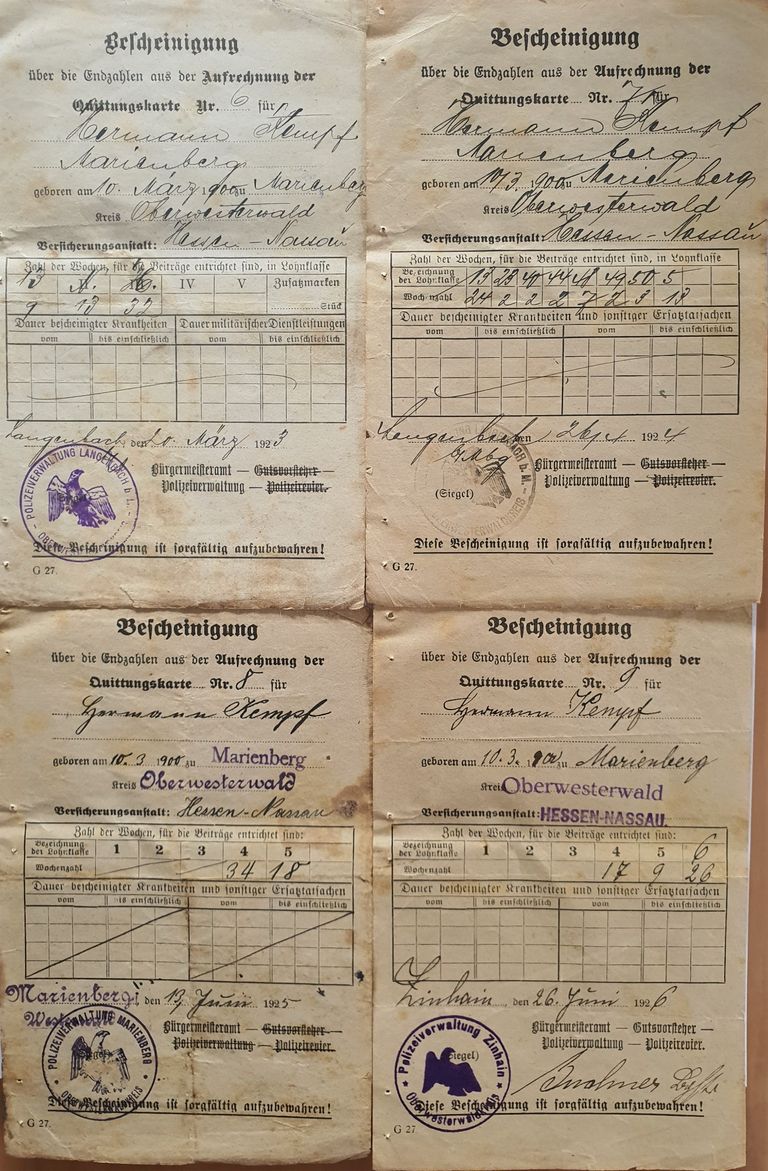 Bescheinigung
über die Endzahlen aus der Aufrechnung der
Quittungskarte Nr. 6 für
Hermann Kempf
Marienberg
geboren am 10. März 1900 zu Marienberg
Kreis Oberwesterwald
Versicherungsanstalt: Hessen-Nassau
Zahl der Wochen, für die Beiträge entrichtet sind, in Lohnklasse
13 IV V Zusatzmarken
9 13 32 Stück
Dauer bescheinigter Krankheiten Dauer militärischer Dienstleistungen
vom bis einschließlich vom bis einschließlich
Langenbach, den 20. März 1923
Bürgermeisteramt — Gutsvorsteher
Polizeiverwaltung — Polizeirevier.
POLIZEIVERWALTUNG LANGENBACH b. M.
Diese Bescheinigung ist sorgfältig aufzubewahren!
G 27.
Bescheinigung
über die Endzahlen aus der Aufrechnung der
Quittungskarte Nr. 7 für
Hermann Kempf
Marienberg
geboren am 10/3. 1900 zu Marienberg
Kreis Oberwesterwald
Versicherungsanstalt: Hessen-Nassau
Zahl der Wochen, für die Beiträge entrichtet sind, in Lohnklasse
Bezeichnung der Lohnklasse 13 23 40 44 48 49 50 5
Wochenzahl 24 2 2 2 7 2 3 13
Dauer bescheinigter Krankheiten und sonstiger Ersatztatsachen
vom bis einschließlich vom bis einschließlich
Langenbach, den 26/4 1924
Bürgermeisteramt — Gutsvorsteher
(Siegel) Polizeiverwaltung — Polizeirevier.
Diese Bescheinigung ist sorgfältig aufzubewahren!
G 27.
Bescheinigung
über die Endzahlen aus der Aufrechnung der
Quittungskarte Nr. 8 für
Hermann Kempf
geboren am 10.3 1900 zu Marienberg
Kreis Oberwesterwald
Versicherungsanstalt: Hessen-Nassau
Zahl der Wochen, für die Beiträge entrichtet sind:
Bezeichnung der Lohnklasse 1 2 3 4 5
Wochenzahl 34 18
Dauer bescheinigter Krankheiten und sonstiger Ersatztatsachen
vom bis einschließlich vom bis einschließlich
Marienberg, den 13. Juni 1925
Bürgermeisteramt — Gutsvorsteher
(Siegel) Polizeiverwaltung — Polizeirevier.
POLIZEIVERWALTUNG MARIENBERG
OBERWESTERWALDKREIS
Diese Bescheinigung ist sorgfältig aufzubewahren!
G 27.
Bescheinigung
über die Endzahlen aus der Aufrechnung der
Quittungskarte Nr. 9 für
Hermann Kempf
geboren am 10.3. 1900 zu Marienberg
Kreis Oberwesterwald
Versicherungsanstalt: HESSEN-NASSAU.
Zahl der Wochen, für die Beiträge entrichtet sind:
Bezeichnung der Lohnklasse 1 2 3 4 5 6
Wochenzahl 17 9 26
Dauer bescheinigter Krankheiten und sonstiger Ersatztatsachen
vom bis einschließlich vom bis einschließlich
Zinhain, den 26. Juni 1926
Bürgermeisteramt — Gutsvorsteher
(Siegel) Polizeiverwaltung — Polizeirevier.
Polizeiverwaltung Zinhain
Oberwesterwaldkreis
Diese Bescheinigung ist sorgfältig aufzubewahren!
G 27.